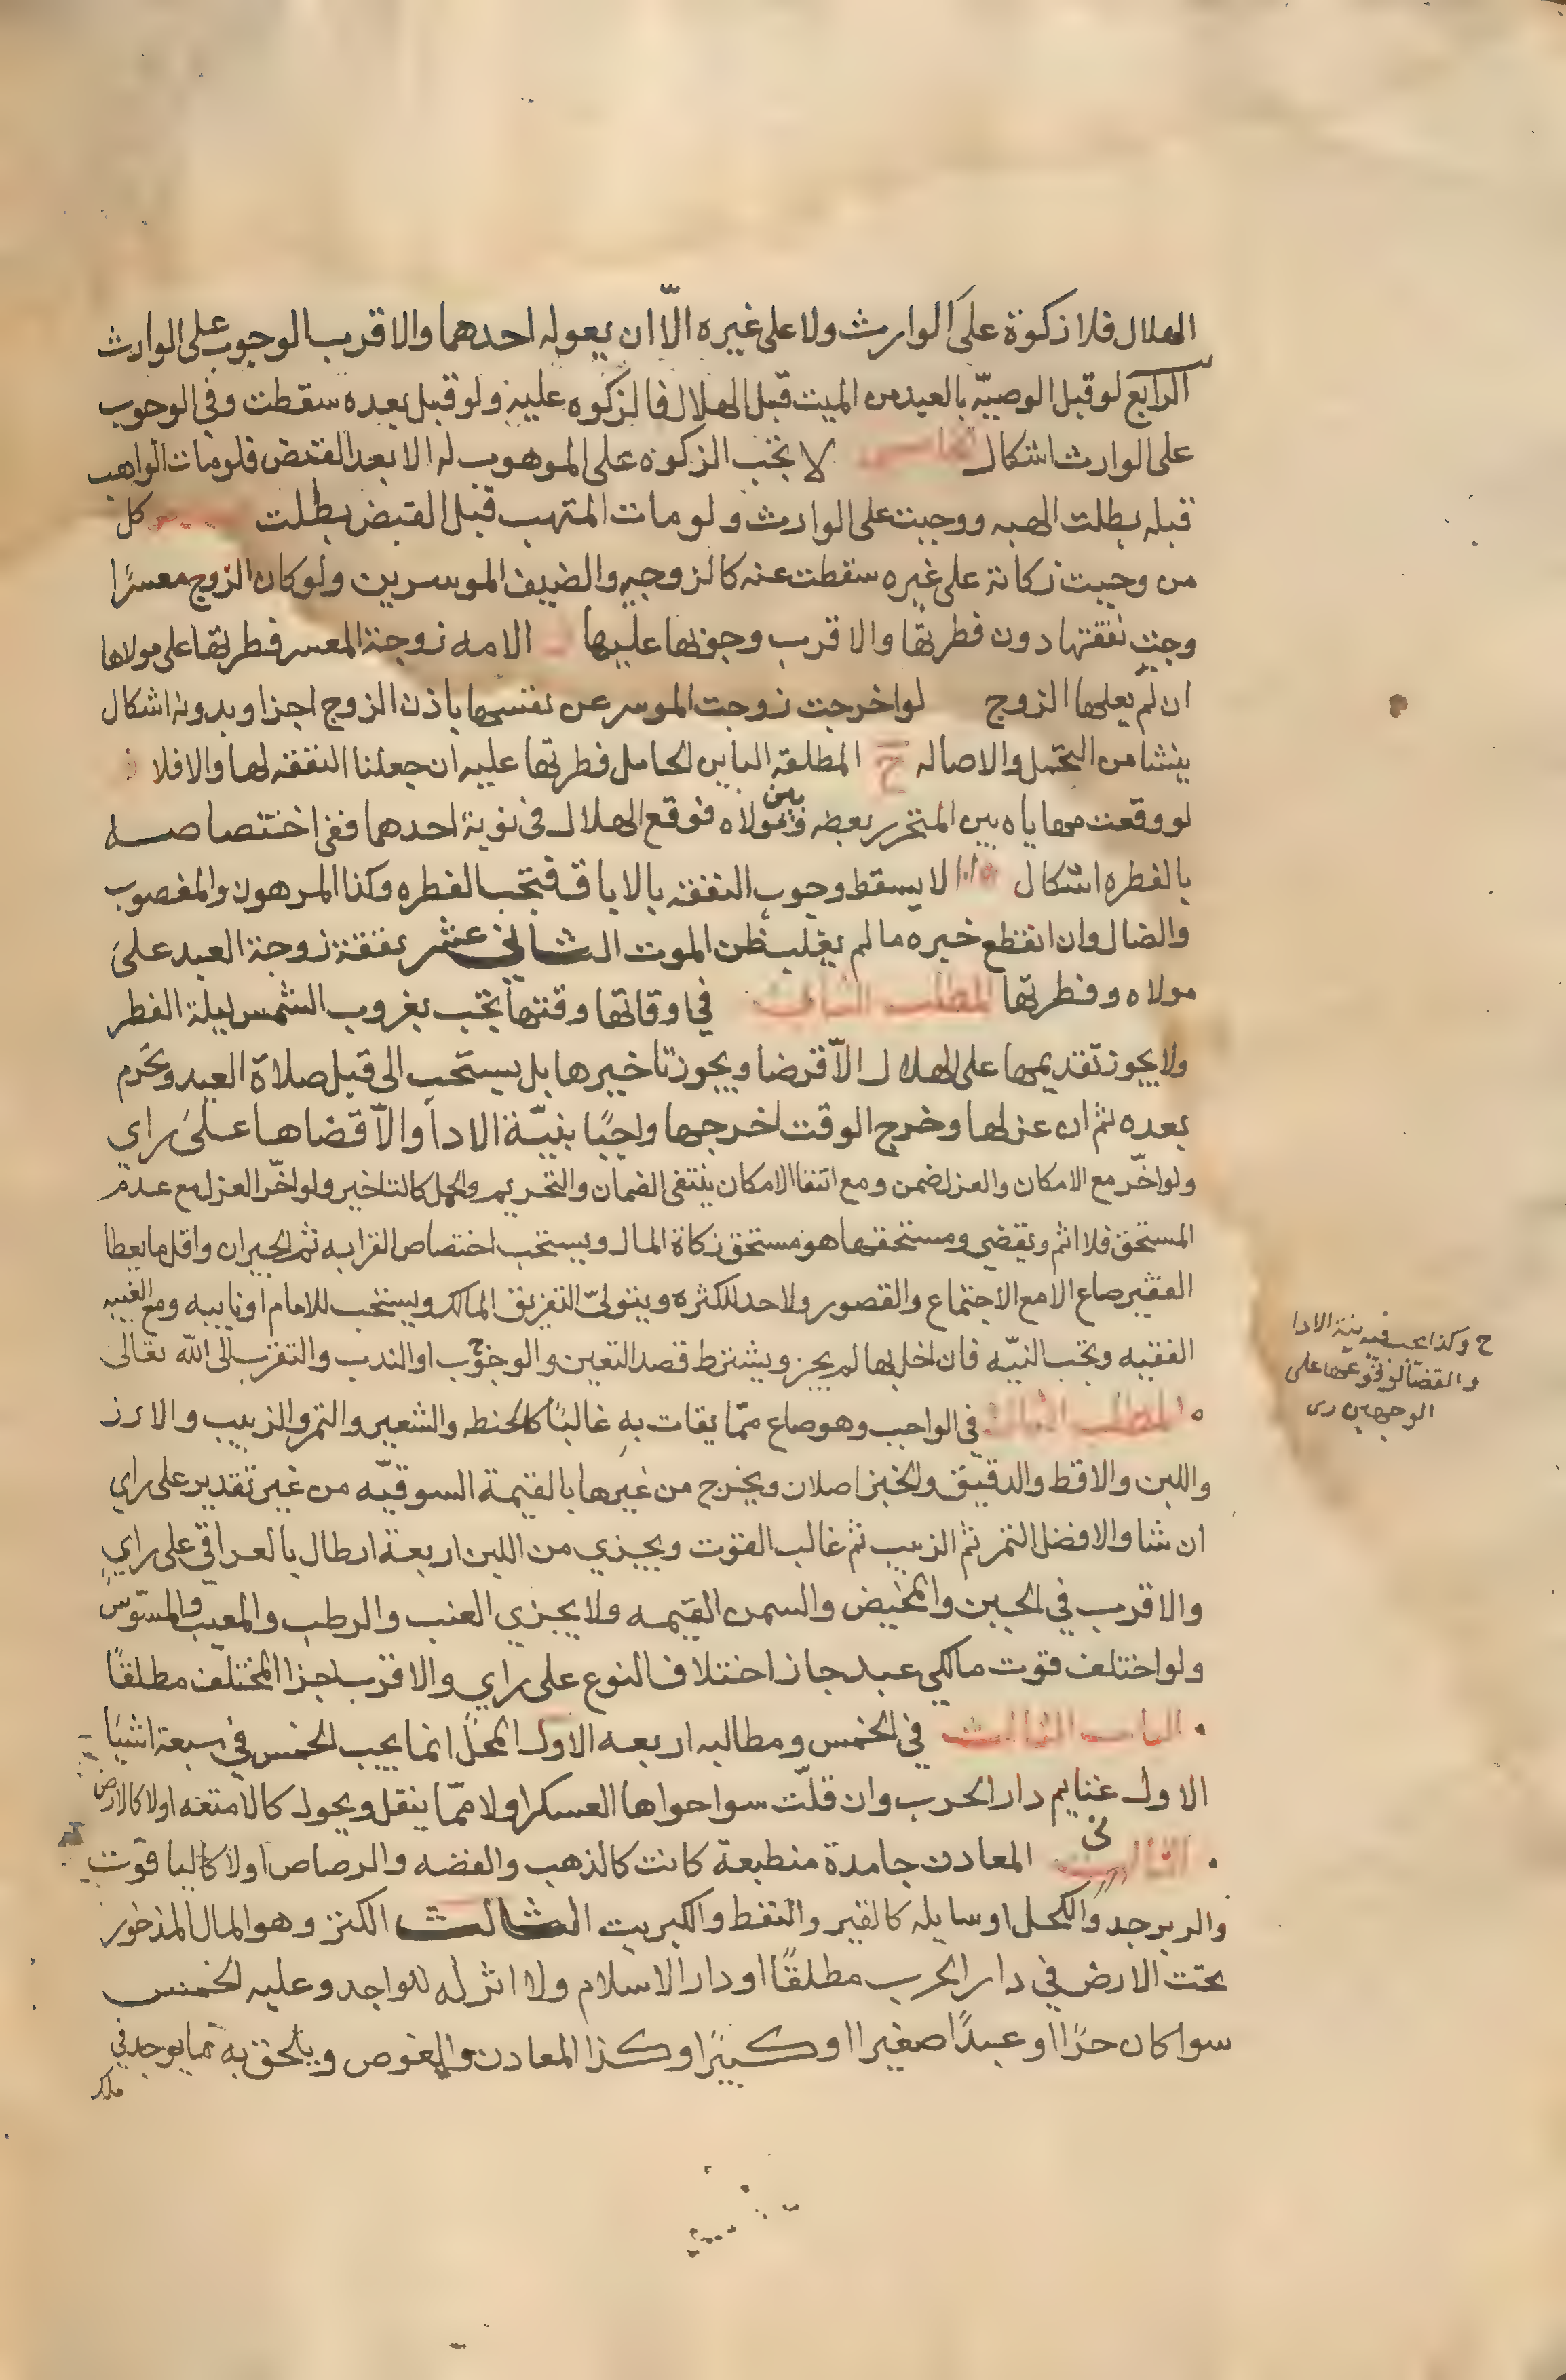 الهلال فلا زكوة على الوارث ولا على غيره الّا ان يعوله احدهما والاقرب الوجوب على الوارث
الرابع لو قبل الوصيّة بالعبد من الميت قبل الهلال فالزكوه عليه ولو قبل بعده سقطت وفي الوجوب
على الوارث اشكال الخامس لا تجب الزكوه على الموهوب له الا بعد القبض فلو مات الواهب
قبله بطلت الهبه ووجبت على الوارث ولو مات المتهب قبل القبض بطلت كل
من وجبت زكاته على غيره سقطت عنه كالزوجه والضيف الموسرين ولو كان الزوج معسرًا
وجبت نفقتها دون فطرتها والاقرب وجوبها عليها الامه زوجة المعسر فطرتها على مولاها
ان لم يعلها الزوج لو اخرجت زوجت الموسر عن نفسها باذن الزوج اجزا وبدونه اشكال
ينشا من التحمل والاصاله ح المطلقه الباين الحامل فطرتها عليه ان جعلنا النفقه لها والا فلا
لو وقعت مهاياه بين المتحرر بعضه وبين مولاه فوقع الهلال في نوبة احدهما ففي اختصاصه
بالفطره اشكال لا يسقط وجوب النفقه بالاباق فتجب الفطره وكذا المرهون والمغصوب
والضال وان انقطع خبره ما لم يغلب ظن الموت الثاني عشر نفقة زوجة العبد على
مولاه وفطرتها المطلب الثاني في اوقاتها وقتها تجب بغروب الشمس ليلة الفطر
ولا يجوز تقديمها على الهلال الّا قرضا ويجوز تاخيرها بل يستحب الى قبل صلاة العيد وتحرم
بعده ثم ان عزلها وخرج الوقت اخرجها واجبًا بنيّة الادا والّا قضاها على راي
ولو اخّر مع الامكان والعزل ضمن ومع انتفا الامكان ينتفى الضمان والتحريم والحمل كالتاخير ولو اخّر العزل مع عدم
المستحق فلا اثم وتقضى ومستحقها هو مستحق زكاة المال ويستحب اختصاص القرابه ثم الجيران واقل ما يعطا
الفقير صاع الا مع الاجتماع والقصور ولا حد للكثره ويتولّى التفريق المالك ويستحب للامام او نايبه ومع الغيبه
الفقيه وتجب النيّه فان اخل بها لم يجز ويشترط قصد التعيين والوجوب او الندب والتقرب الى الله تعالى
المطلب الثالث في الواجب وهو صاع ممّا يقات به غالبًا كالحنطه والشعير والتمر والزبيب والارز
واللبن والاقط والدقيق والخبز اصلان ويخرج من غيرها بالقيمة السوقيّه من غير تقدير على راي
ان شا والافضل التمر ثم الزبيب ثم غالب القوت ويجزي من اللبن اربعة ارطال بالعراقي على راي
والاقرب في الجبن والمخيض والسمن القيمه ولا يجزي العنب والرطب والمعيب والمسوّس
ولو اختلف قوت مالكي عبد جاز اختلاف النوع على راي والاقرب اجزا المختلف مطلقًا
الباب الثالث في الخمس ومطالبه اربعه الاول المحل انما يجب الخمس في سبعة اشيا
الاول غنايم دار الحرب وان قلّت سوا حواها العسكر او لا ممّا ينقل ويحول كالامتعه او لا كالارض
الثاني المعادن جامدة منطبعة كانت كالذهب والفضه والرصاص او لا كالياقوت
والزبرجد والكحل او سايله كالقير والنفط والكبريت الثالث الكنز وهو المال المذخور
تحت الارض في دار الحرب مطلقًا او دار الاسلام ولا اثر له للواجد وعليه الخمس
سوا كان حرًا او عبدًا صغيرا او كبيرًا وكذا المعادن والغوص ويلحق به ما يوجد في
ملك
ح وكذا يجب فيه بنية الادا
والقضا لوقوعها على
الوجهين